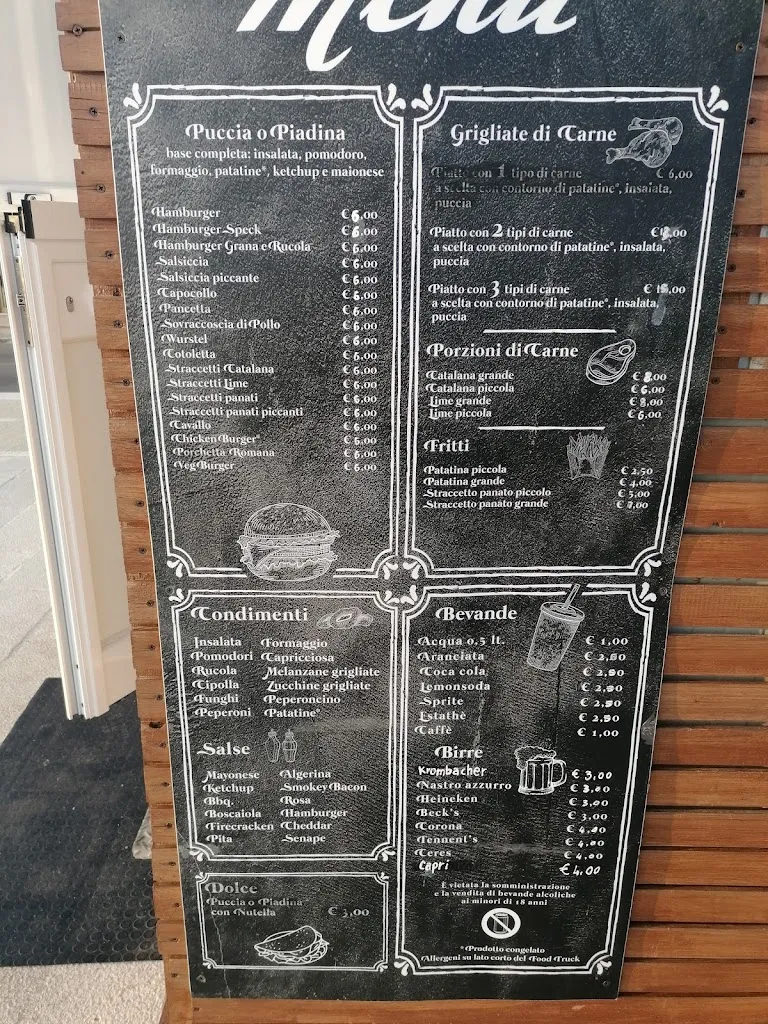 Menu
Puccia o Piadina
base completa: insalata, pomodoro,
formaggio, patatine*, ketchup e maionese
Hamburger € 6,00
Hamburger Speck € 6,00
Hamburger Grana e Rucola € 6,00
Salsiccia € 6,00
Salsiccia piccante € 6,00
Capocollo € 6,00
Pancetta € 6,00
Sovraccoscia di Pollo € 6,00
Wurstel € 6,00
Cotoletta € 6,00
Straccetti Catalana € 6,00
Straccetti Lime € 6,00
Straccetti panati € 6,00
Straccetti panati piccanti € 6,00
Cavallo € 6,00
Chicken Burger* € 6,00
Porchetta Romana € 6,00
Veg Burger € 6,00
Grigliate di Carne
Piatto con 1 tipo di carne € 6,00
a scelta con contorno di patatine*, insalata,
puccia
Piatto con 2 tipi di carne
a scelta con contorno di patatine*, insalata,
puccia
Piatto con 3 tipi di carne
a scelta con contorno di patatine*, insalata,
puccia
Porzioni di Carne
Catalana grande € 8,00
Catalana piccola € 6,00
Lime grande € 8,00
Lime piccola € 6,00
Fritti
Patatina piccola € 2,50
Patatina grande € 4,00
Straccetto panato piccolo € 5,00
Straccetto panato grande
Condimenti
Insalata Formaggio
Pomodori Capricciosa
Rucola Melanzane grigliate
Cipolla Zucchine grigliate
Funghi Peperoncino
Peperoni Patatine*
Salse
Mayonese Algerina
Ketchup Smokey Bacon
Bbq. Rosa
Boscaiola Hamburger
Firecracken Cheddar
Pita Senape
Dolce
Puccia o Piadina
con Nutella € 3,00
Bevande
Acqua 0.5 lt. € 1,00
Aranciata
Coca cola
Lemonsoda
Sprite
Estathè
Caffè € 1,00
Birre
Krombacher € 3,00
Nastro azzurro € 3,00
Heineken € 3,00
Beck's € 3,00
Corona € 4,00
Tennent's € 4,00
Ceres € 4,00
Capri € 4,00
È vietata la somministrazione
e la vendita di bevande alcoliche
ai minori di 18 anni
*Prodotto congelato
Allergeni su lato corto del Food Truck